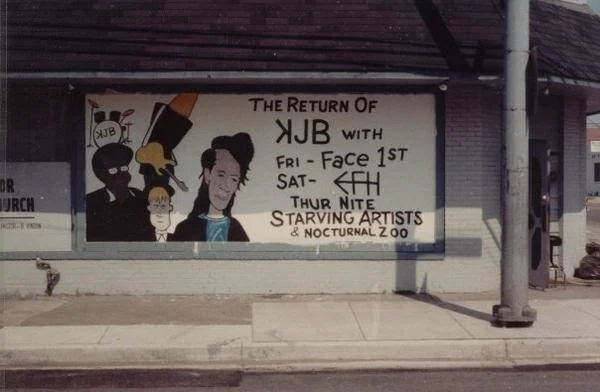 THE RETURN OF
KJB WITH
FRI - FACE 1ST
SAT- EFH
THUR NITE
STARVING ARTISTS
& NOCTURNAL ZOO
KJB
OR
URCH